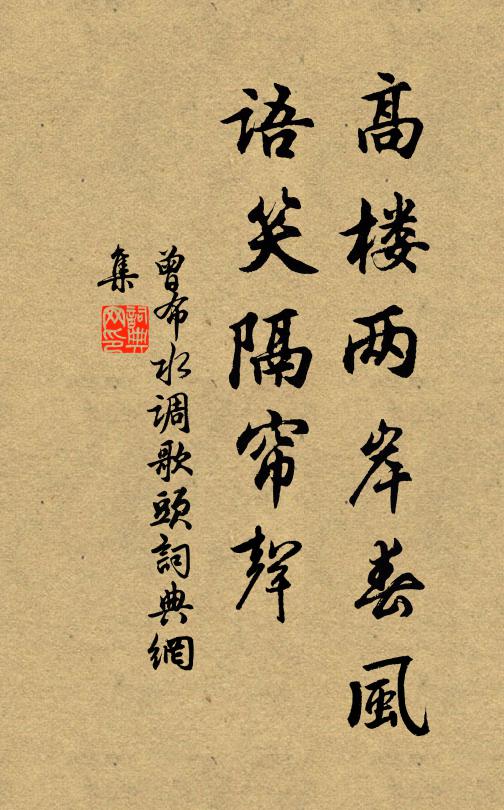 高楼两岸春風
语笑隔帘聲
曾布水调歌頭詞典網
集
詞典
网印